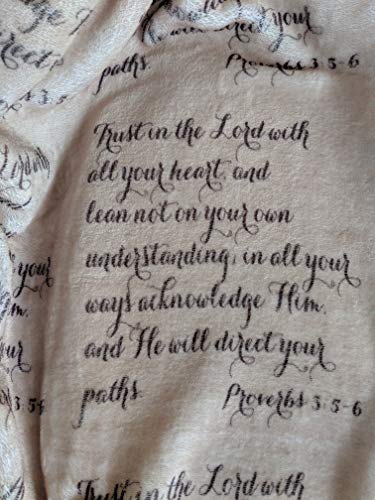 direct your
paths. Proverbs 3:5-6
Trust in the Lord with
all your heart, and
lean not on your own
understanding; in all your
ways acknowledge Him,
and He will direct your
paths. Proverbs 3:5-6
Trust in the Lord with